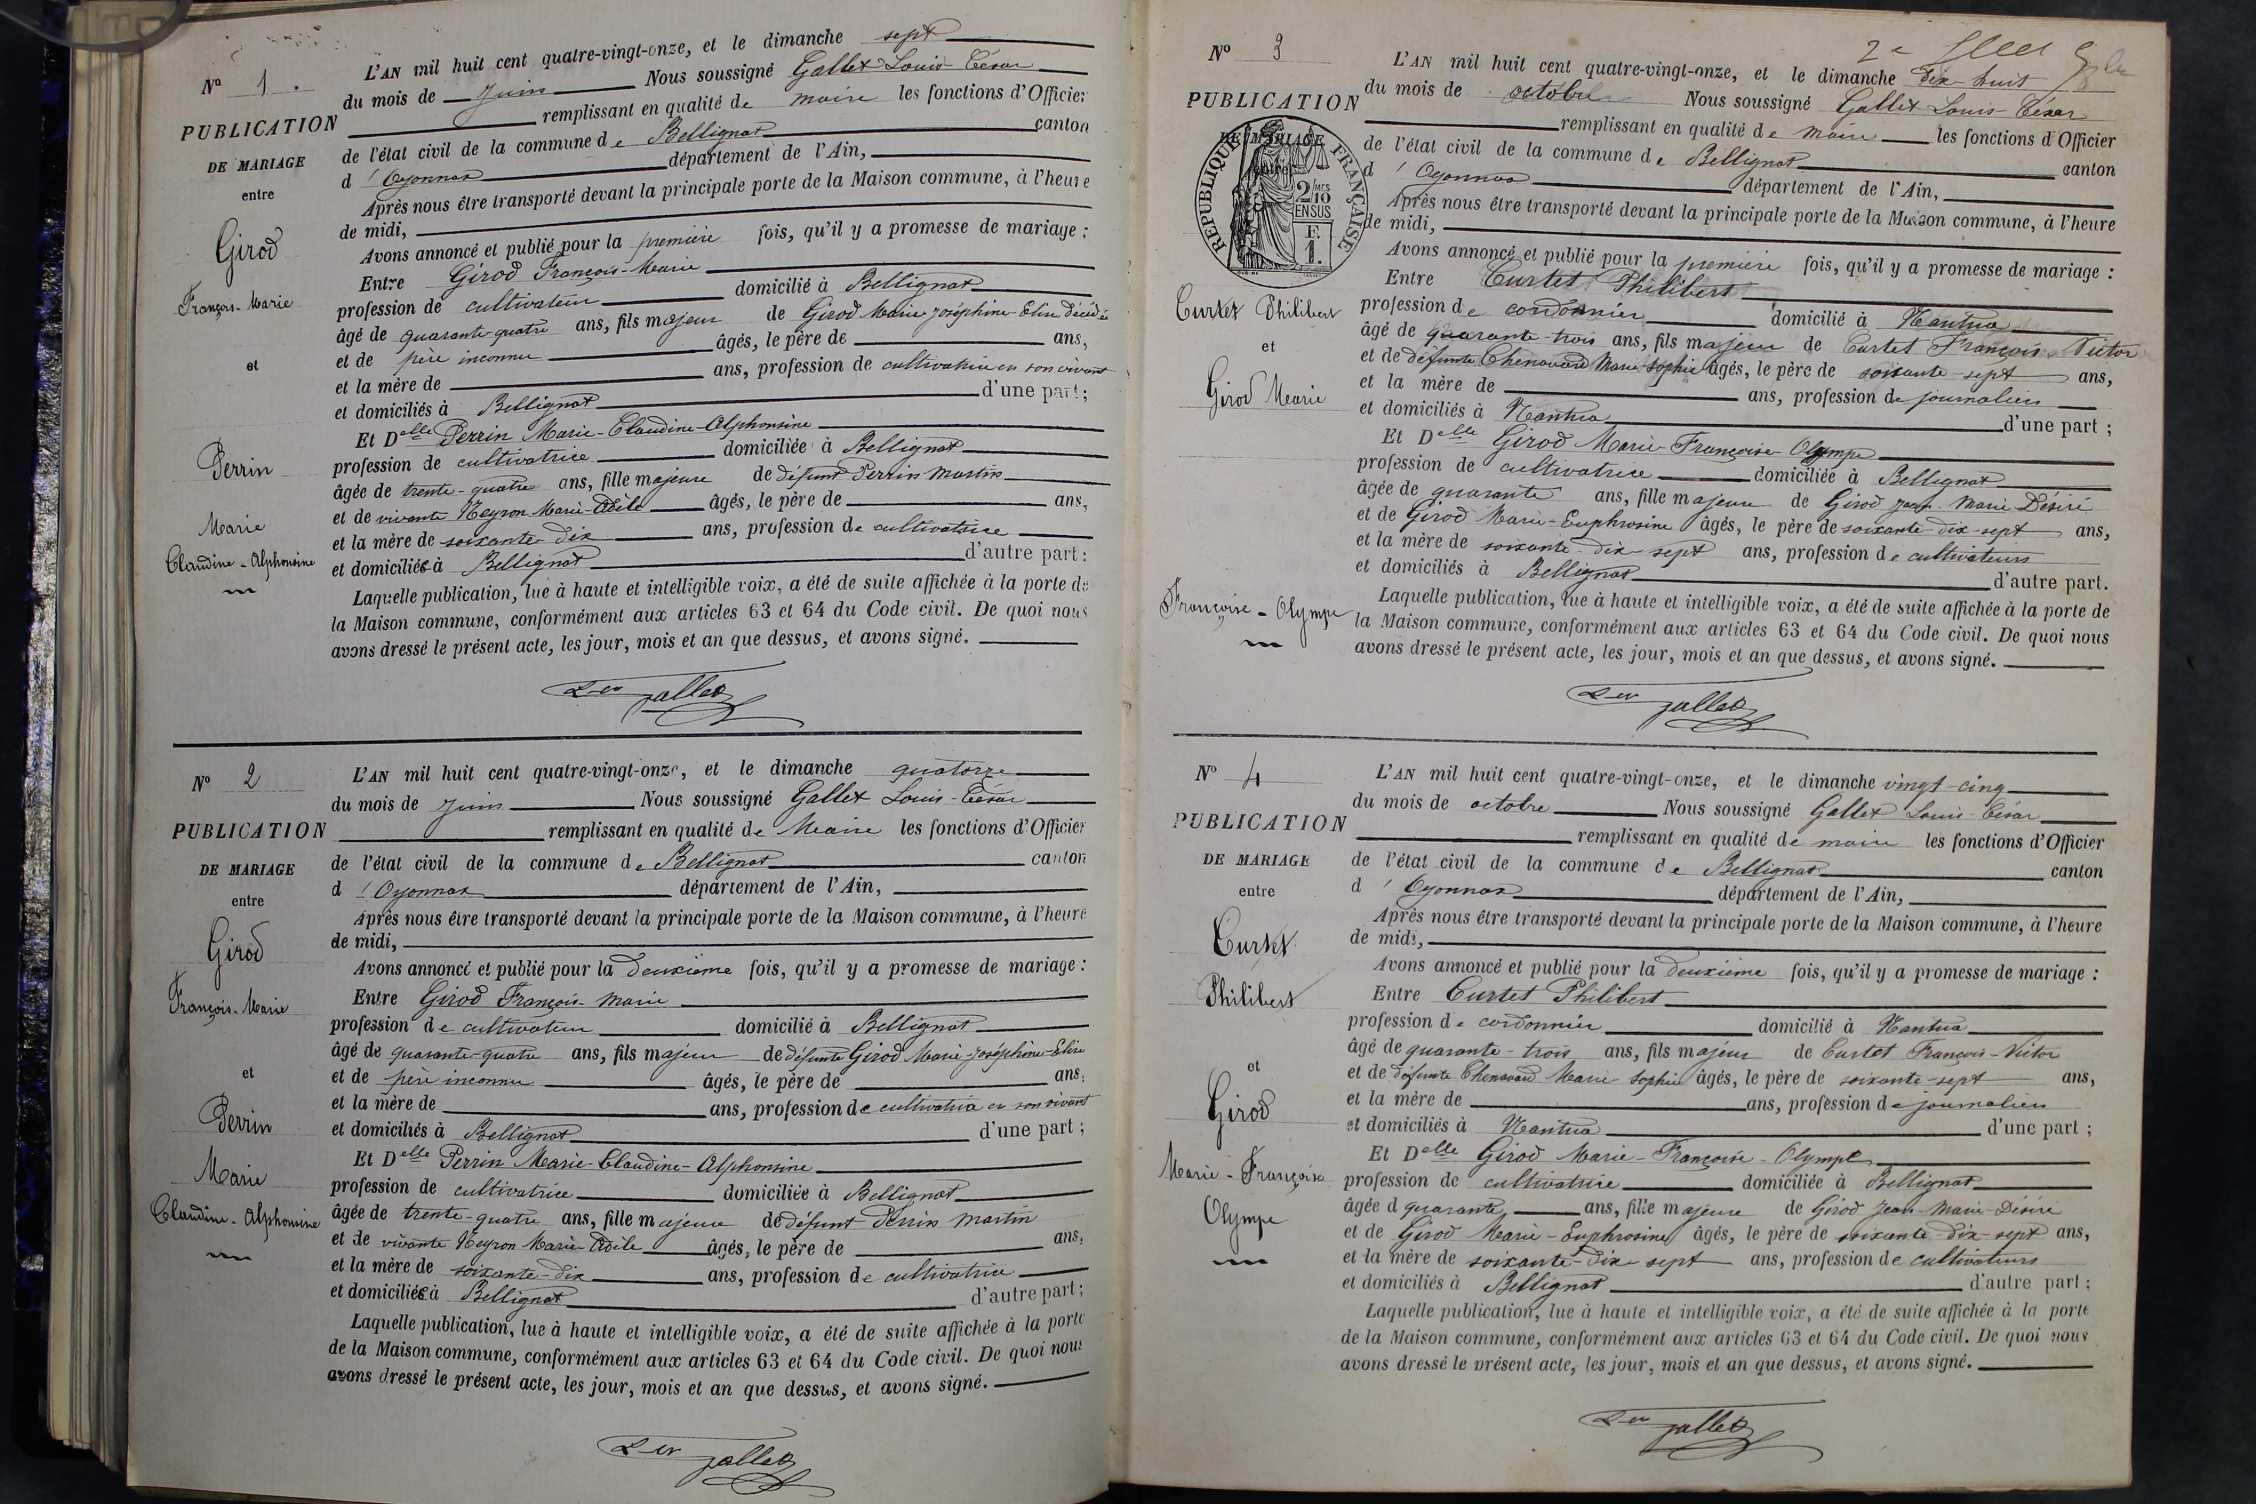 N° 1.
PUBLICATION
DE MARIAGE
entre
Girod
François-Marie
et
Perrin
Marie
Claudine-Alphonsine
L'AN mil huit cent quatre-vingt-onze, et le dimanche sept
du mois de Juin Nous soussigné Gallet Louis César
remplissant en qualité de maire les fonctions d'Officier
de l'état civil de la commune de Bellignat canton
d'Oyonnax département de l'Ain,
Après nous être transporté devant la principale porte de la Maison commune, à l'heure
de midi,
Avons annoncé et publié pour la première fois, qu'il y a promesse de mariage :
Entre Girod François-Marie
profession de cultivateur domicilié à Bellignat
âgé de quarante-quatre ans, fils majeur de Girod Marie Joséphine-Elise décédée
et de père inconnu âgés, le père de ans,
et la mère de ans, profession de cultivatrice en son vivant
et domiciliés à Bellignat d'une part ;
Et Delle Perrin Marie-Claudine-Alphonsine
profession de cultivatrice domiciliée à Bellignat
âgée de trente-quatre ans, fille majeure de défunt Perrin Martin
et de vivante Neyron Marie-Adèle âgés, le père de ans,
et la mère de soixante-dix ans, profession de cultivatrice
et domiciliée à Bellignat d'autre part :
Laquelle publication, lue à haute et intelligible voix, a été de suite affichée à la porte de
la Maison commune, conformément aux articles 63 et 64 du Code civil. De quoi nous
avons dressé le présent acte, les jour, mois et an que dessus, et avons signé.
Gallet
N° 2
PUBLICATION
DE MARIAGE
entre
Girod
François-Marie
et
Perrin
Marie
Claudine-Alphonsine
L'AN mil huit cent quatre-vingt-onze, et le dimanche quatorze
du mois de Juin Nous soussigné Gallet Louis-César
remplissant en qualité de Maire les fonctions d'Officier
de l'état civil de la commune de Bellignat canton
d'Oyonnax département de l'Ain,
Après nous être transporté devant la principale porte de la Maison commune, à l'heure
de midi,
Avons annoncé et publié pour la deuxième fois, qu'il y a promesse de mariage :
Entre Girod François-Marie
profession de cultivateur domicilié à Bellignat
âgé de quarante-quatre ans, fils majeur de défunte Girod Marie-Joséphine-Elise
et de père inconnu âgés, le père de ans,
et la mère de ans, profession de cultivatrice en son vivant
et domiciliés à Bellignat d'une part ;
Et Delle Perrin Marie-Claudine-Alphonsine
profession de cultivatrice domiciliée à Bellignat
âgée de trente-quatre ans, fille majeure de défunt Perrin Martin
et de vivante Neyron Marie-Adèle âgés, le père de ans,
et la mère de soixante-dix ans, profession de cultivatrice
et domiciliée à Bellignat d'autre part ;
Laquelle publication, lue à haute et intelligible voix, a été de suite affichée à la porte
de la Maison commune, conformément aux articles 63 et 64 du Code civil. De quoi nous
avons dressé le présent acte, les jour, mois et an que dessus, et avons signé.
Gallet
N° 3
PUBLICATION
DE MARIAGE
entre
RÉPUBLIQUE FRANÇAISE
2/10
EN SUS
F.
1.
Curtet Philibert
et
Girod Marie
Françoise-Olympe
L'AN mil huit cent quatre-vingt-onze, et le dimanche dix-huit
du mois de octobre Nous soussigné Gallet Louis-César
remplissant en qualité de maire les fonctions d'Officier
de l'état civil de la commune de Bellignat canton
d'Oyonnax département de l'Ain,
Après nous être transporté devant la principale porte de la Maison commune, à l'heure
de midi,
Avons annoncé et publié pour la première fois, qu'il y a promesse de mariage :
Entre Curtet Philibert
profession de cordonnier domicilié à Nantua
âgé de quarante-trois ans, fils majeur de Curtet François-Victor
et de défunte Chenavard Marie-Sophie âgés, le père de soixante-sept ans,
et la mère de ans, profession de journalier
et domiciliés à Nantua d'une part ;
Et Delle Girod Marie-Françoise-Olympe
profession de cultivatrice domiciliée à Bellignat
âgée de quarante ans, fille majeure de Girod Jean-Marie Désiré
et de Girod Marie-Euphrosine âgés, le père de soixante-dix-sept ans,
et la mère de soixante-dix-sept ans, profession de cultivateurs
et domiciliés à Bellignat d'autre part.
Laquelle publication, lue à haute et intelligible voix, a été de suite affichée à la porte de
la Maison commune, conformément aux articles 63 et 64 du Code civil. De quoi nous
avons dressé le présent acte, les jour, mois et an que dessus, et avons signé.
Gallet
N° 4
PUBLICATION
DE MARIAGE
entre
Curtet
Philibert
et
Girod
Marie-Françoise
Olympe
L'AN mil huit cent quatre-vingt-onze, et le dimanche vingt-cinq
du mois de octobre Nous soussigné Gallet Louis-César
remplissant en qualité de maire les fonctions d'Officier
de l'état civil de la commune de Bellignat canton
d'Oyonnax département de l'Ain,
Après nous être transporté devant la principale porte de la Maison commune, à l'heure
de midi,
Avons annoncé et publié pour la deuxième fois, qu'il y a promesse de mariage :
Entre Curtet Philibert
profession de cordonnier domicilié à Nantua
âgé de quarante-trois ans, fils majeur de Curtet François-Victor
et de défunte Chenavard Marie-Sophie âgés, le père de soixante-sept ans,
et la mère de ans, profession de journalier
et domiciliés à Nantua d'une part ;
Et Delle Girod Marie-Françoise-Olympe
profession de cultivatrice domiciliée à Bellignat
âgée d quarante ans, fille majeure de Girod Jean-Marie-Désiré
et de Girod Marie-Euphrosine âgés, le père de soixante-dix-sept ans,
et la mère de soixante-dix-sept ans, profession de cultivateurs
et domiciliés à Bellignat d'autre part ;
Laquelle publication, lue à haute et intelligible voix, a été de suite affichée à la porte
de la Maison commune, conformément aux articles 63 et 64 du Code civil. De quoi nous
avons dressé le présent acte, les jour, mois et an que dessus, et avons signé.
Gallet